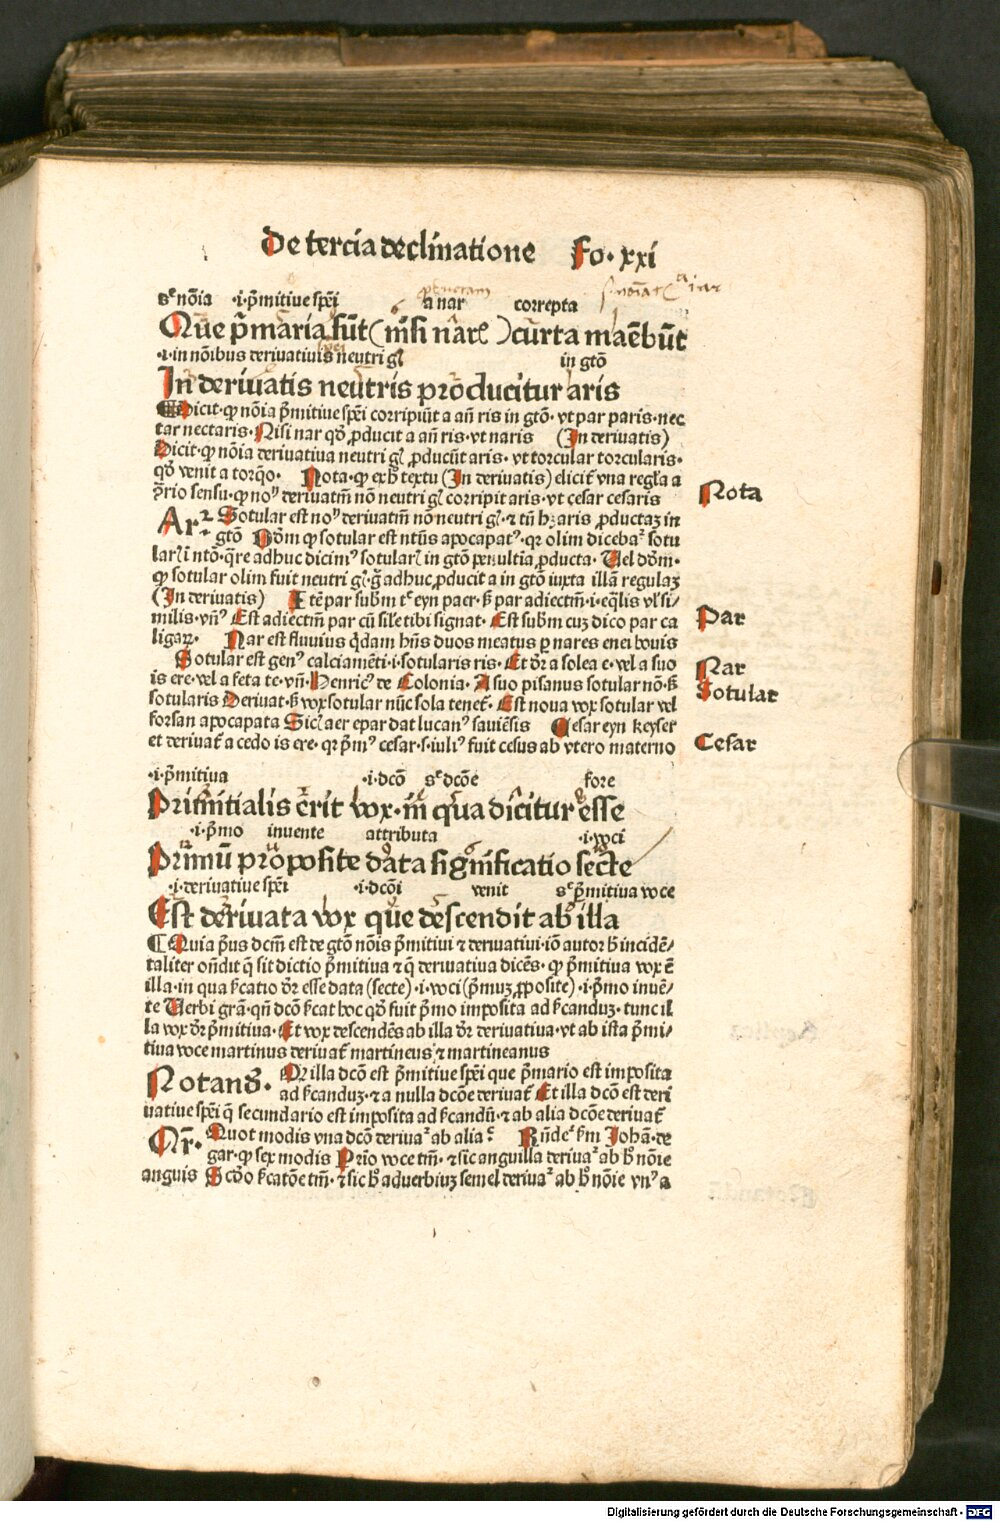 De tercia declinatione Fo. xxi
sᵉ nōia .i. p̄mitiue spēi a nar correpta
Que p̄maria sūt (nisi narꝭ) curta manebūt
.i. in nōibus deriuatiuis neutri gꝭ in gtō
In deriuatis neutris producitur aris
Dicit. ꝙ nōia p̄mitiue spēi corripiūt a añ ris in gtō. vt par paris. nec
tar nectaris. Nisi nar qd̄ ꝓducit a añ ris. vt naris (In deriuatis)
Dicit. ꝙ nōia deriuatiua neutri gꝭ ꝓducūt aris. vt torcular torcularis.
qd̄ venit a torq̄o. Nota. ꝙ ex h̄ textu (In deriuatis) elicit̄ vna regl̄a a
ꝯrio sensu. ꝙ noᵐ deriuatm̄ nō neutri gꝭ corripit aris. vt cesar cesaris
Nota
Arʳ. Sotular est noᵐ deriuatm̄ nō neutri gꝭ. ⁊ tn̄ hꝫ aris ꝓductaꝫ in
gtō Dōm ꝙ sotular est ntūs apocapatꝰ. qꝛ olim dicebaʳ sotu
larꝭ ī ntō. q̄re adhuc dicimꝰ sotularꝭ in gtō penultīa ꝓducta. Uel dōm.
ꝙ sotular olim fuit neutri gꝭ. q̄ adhuc ꝓducit a in gtō iuxta illā regulaꝫ
(In deriuatis) Itē par subm̄ tᵉ eyn paer. ꝫ par adiectm̄ .i. eq̄lis vl̄ si/
milis. vn̄ꝰ Est adiectm̄ par cū sile tibi signat. Est subm̄ cuꝫ dico par ca
Par
ligaꝝ. Nar est fluuius q̄dam hn̄s duos meatus ꝑ nares enei bouis
Nar
Sotular est genꝰ calciamēti .i. sotularis ris. Et dr̄ a solea e. vel a suo
Sotular
is ere. vel a feta te. vn̄. Henricꝰ de Colonia. A suo pisanus sotular nō. ꝫ
sotularis Deriuat. ꝫ vox sotular nūc sola tenet̄. Est noua vox sotular vel
forsan apocapata Sicꝭ aer epar dat lucanꝰ sauiēsis Cesar eyn keyser
et deriuat̄ a cedo is ere. qꝛ p̄mꝰ cesar. s. iuliꝰ fuit cesus ab vtero materno
Cesar
.i. p̄mitiua .i. dcō sᵉ dcōe fore
Primitialis erit vox. in qua dicitur esse
.i. p̄mo inuente attributa .i. voci
Primū proposite data significatio secte
.i. deriuatiue spēi .i. dcōi venit sᵉ p̄mitiua voce
Est deriuata vox que descendit ab illa
Quia p̄us dcm̄ est de gtō nōis p̄mitiui ⁊ deriuatiui. iō autor h̄ incidē/
taliter ondit q̄ sit dictio p̄mitiua ⁊ q̄ deriuatiua dicēs. ꝙ p̄mitiua vox ē
illa. in qua ꝼcatio dr̄ esse data (secte) .i. voci (p̄muꝫ ꝓposite) .i. p̄mo inuē/
te Uerbi grā. qn̄ dcō ꝼcat hoc qd̄ fuit p̄mo imposita ad ꝼcanduꝫ. tunc il
la vox dr̄ p̄mitiua. Et vox descendēs ab illa dr̄ deriuatiua. vt ab ista p̄mi/
tiua voce martinus deriuat̄ martineus ⁊ martineanus
Notanđ. Qꝛ illa dcō est p̄mitiue spēi que p̄mario est imposita
ad ꝼcanduꝫ. ⁊ a nulla dcōe deriuat̄ Et illa dcō est deri
uatiue spēi q̄ secundario est imposita ad ꝼcandū. ⁊ ab alia dcōe deriuat̄
Qr̄. Quot modis vna dcō deriuaʳ ab alia? Rn̄deᵗ ẜm Johā. de
gar. ꝙ sex modis Prīo voce tm̄. ⁊ sic anguilla deriuaʳ ab h̄ nōie
anguis Scdō ꝼcatōe tm̄. ⁊ sic h̄ aduerbiuꝫ semel deriuaʳ ab h̄ nōie vnꝰ a
Digitalisierung gefördert durch die Deutsche Forschungsgemeinschaft - DFG